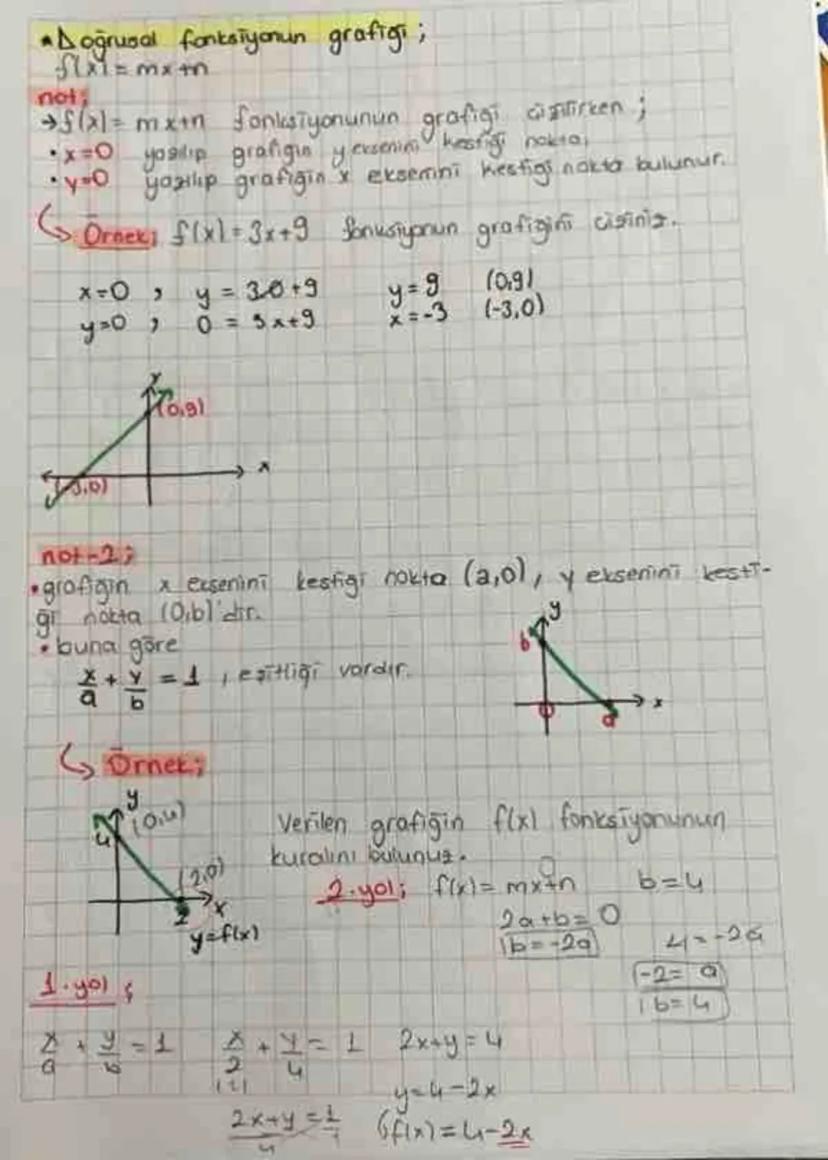 • Doğrusal fonksiyonun grafiği;
f(x) = mx+n
not;
→ f(x) = mx+n fonksiyonunun grafiği çizilirken;
• x=0 yazılıp grafiğin y eksenini kestiği nokta,
• y=0 yazılıp grafiğin x eksenini kestiği nokta bulunur.
Örnek; f(x) = 3x+9 fonksiyonun grafiğini çiziniz.
x=0 , y = 3.0+9 y=9 (0,9)
y=0 , 0 = 3x+9 x=-3 (-3,0)
y
(0,9)
x
(-3,0)
not-2;
• grafiğin x eksenini kestiği nokta (a,0), y eksenini kesti-
ği nokta (0,b)'dir.
• buna göre
x/a + y/b = 1 , eşitliği vardır.
y
b
x
0
a
Örnek;
y
(0,4)
4
(2,0)
x
2
y=f(x)
Verilen grafiğin f(x) fonksiyonunun
kuralını bulunuz.
2.yol; f(x) = mx+n b=4
2a+b=0
b=-2a 4=-2a
-2=a
b=4
1.yol;
x/a + y/b = 1 x/2 + y/4 = 1 2x+y=4
y=4-2x
2x+y/4 = 1 f(x)=4-2x